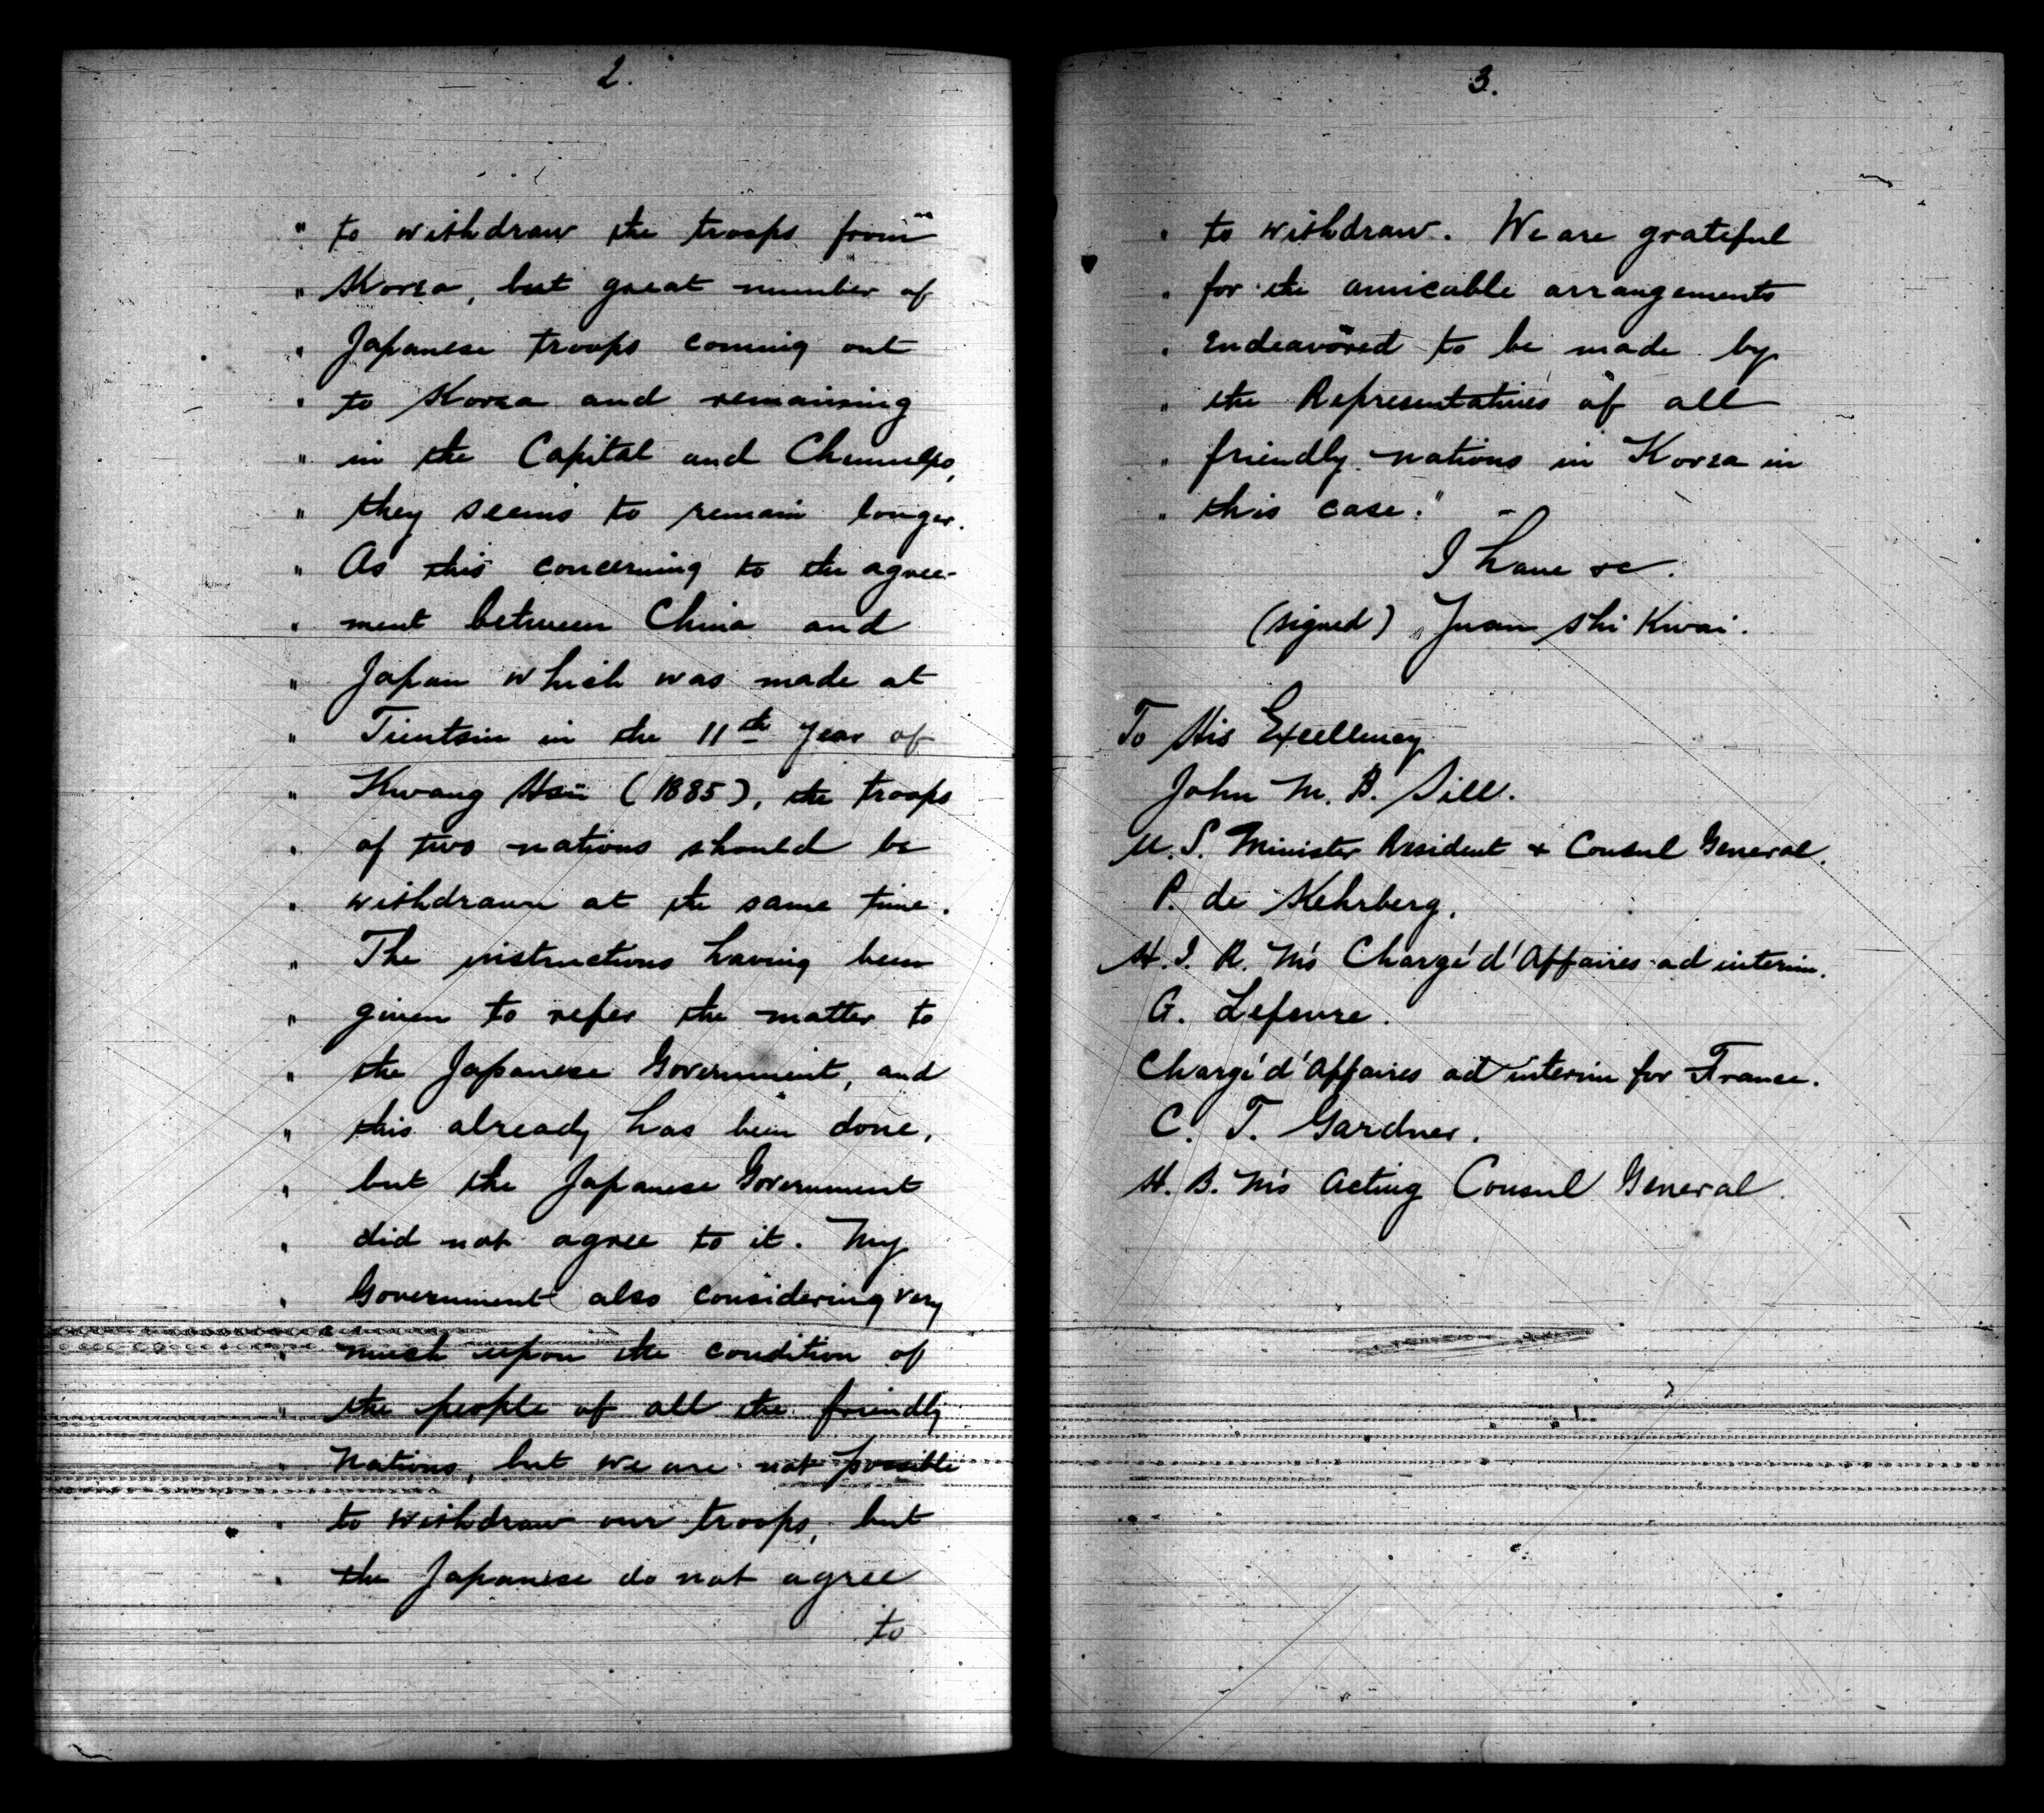 2.
" to withdraw the troops from
" Korea, but great number of
" Japanese troops coming out
" to Korea and remaining
" in the Capital and Chemulpo,
" they seems to remain longer.
" As this concerning to the agree-
" ment between China and
" Japan which was made at
" Tientsin in the 11th year of
" Kwang Hsü (1885), the troops
" of two nations should be
" withdrawn at the same time.
" The instructions having been
" given to refer the matter to
" the Japanese Government, and
" this already has been done,
" but the Japanese Government
" did not agree to it. My
" Government also considering very
" much upon the condition of
" the people of all the friendly
" Nations, but we are not possible
" to withdraw our troops, but
" the Japanese do not agree
to
3.
" to withdraw. We are grateful
" for the amicable arrangements
" endeavored to be made by
" the Representatives of all
" friendly nations in Korea in
" this case."
I have &c.
(signed) Yuan Shi Kwai.
To His Excellency
John M. B. Sill.
U. S. Minister Resident & Consul General.
P. de Kehrberg,
H. I. R. M's Chargé d'Affaires ad interim.
G. Lefevre.
Chargé d'Affaires ad interim for France.
C. T. Gardner.
H. B. M's Acting Consul General.